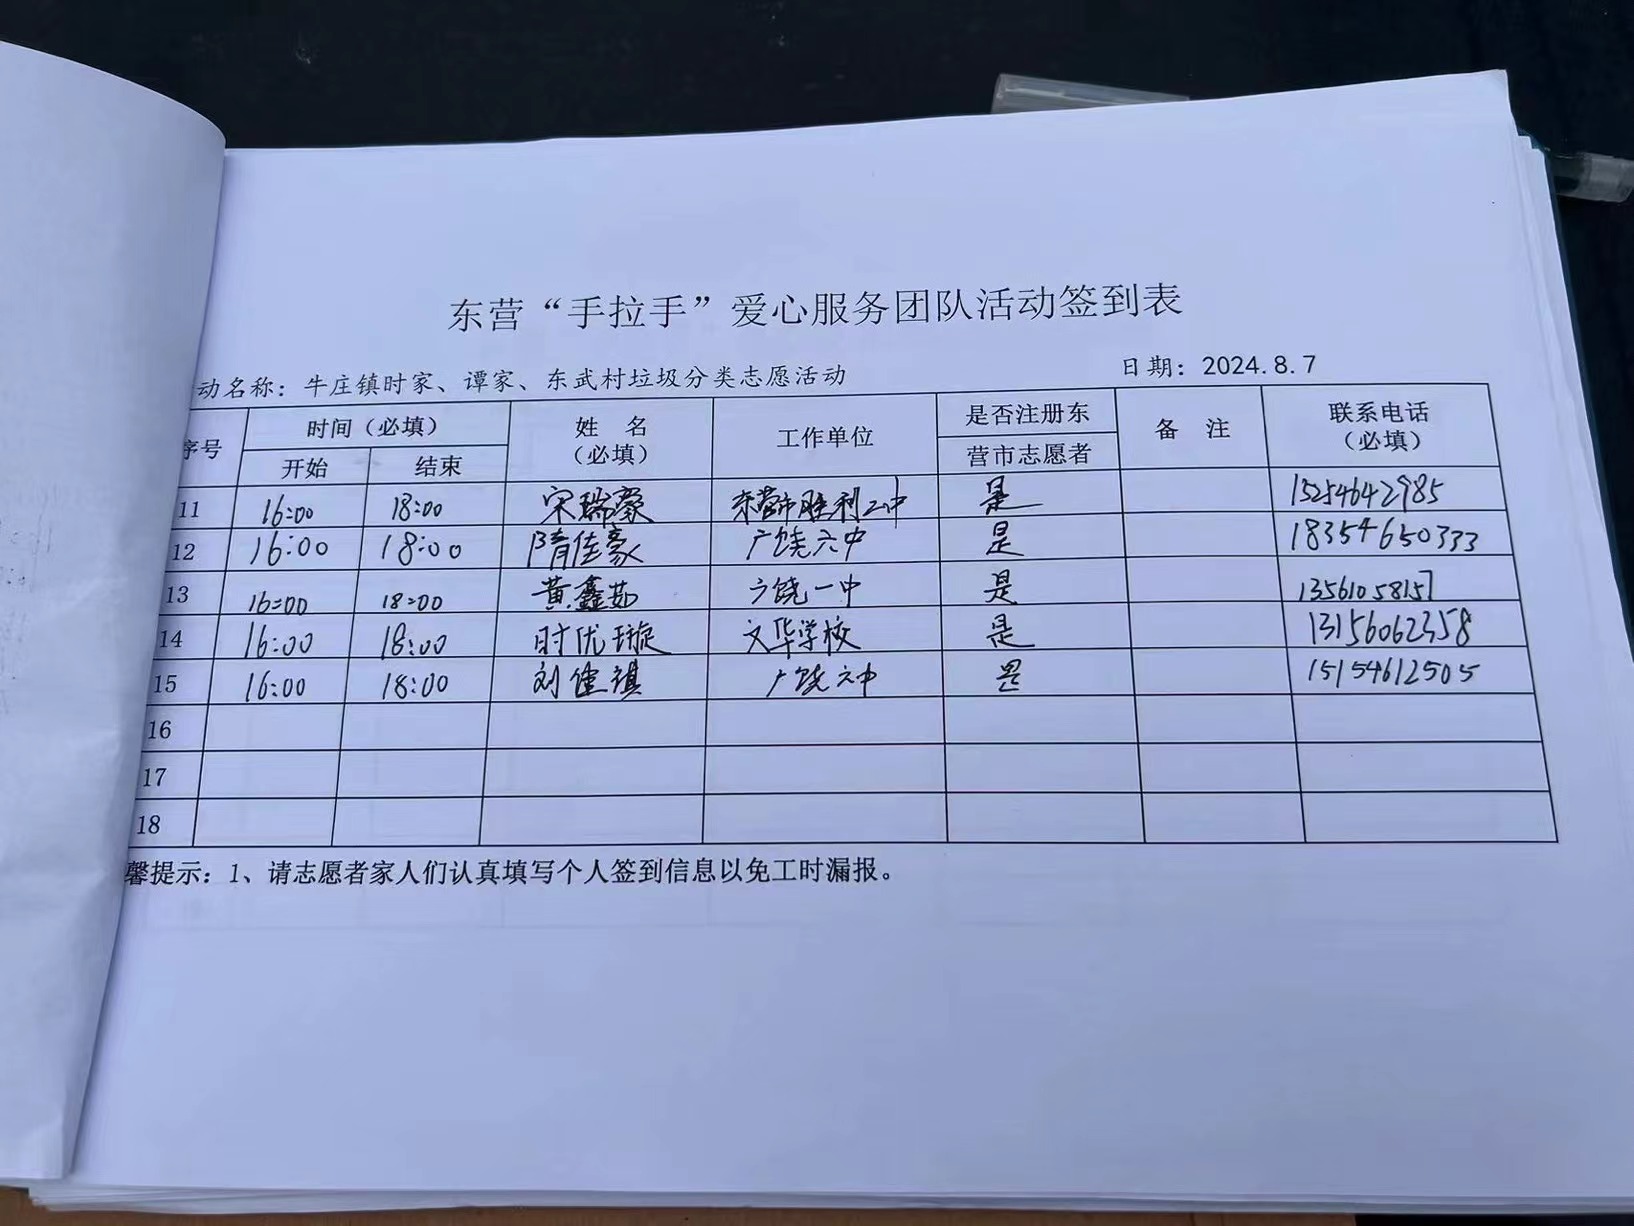 东营“手拉手”爱心服务团队活动签到表
动名称：牛庄镇时家、谭家、东武村垃圾分类志愿活动 日期：2024.8.7
序号 时间（必填） 姓 名（必填） 工作单位 是否注册东营市志愿者 备 注 联系电话（必填）
开始 结束
11 16:00 18:00 宋瑞豪 东营市胜利二中 是 15254642985
12 16:00 18:00 隋佳豪 广饶六中 是 18354650333
13 16:00 18:00 黄鑫茹 广饶一中 是 13561058157
14 16:00 18:00 时优璇 文华学校 是 13156062358
15 16:00 18:00 刘健祺 广饶六中 是 15154612505
16
17
18
馨提示：1、请志愿者家人们认真填写个人签到信息以免工时漏报。